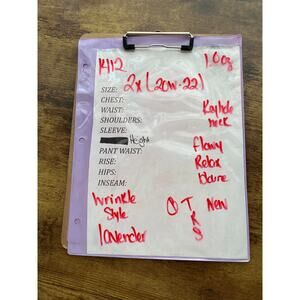 1412 10oz
SIZE: 2x (20W-22)
CHEST:
WAIST: Keyhole
SHOULDERS: neck
SLEEVE:
Height
PANT WAIST: Flowy
RISE: Relax
HIPS:
INSEAM:
Wrinkle T New
Style R
lavender S